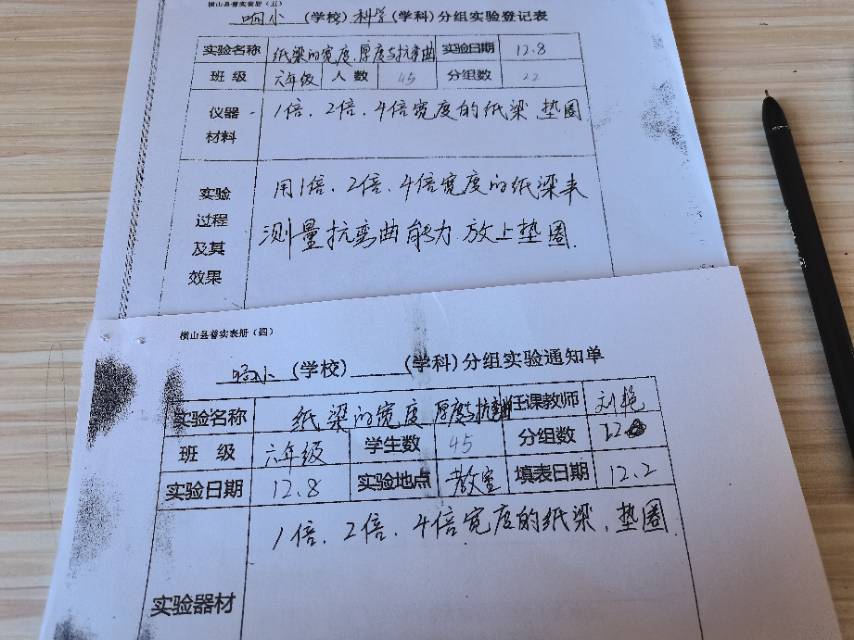 横山县普实表册（五）
响小（学校）科学（学科）分组实验登记表
实验名称 纸梁的宽度、厚度与抗弯曲 实验日期 12.8
班 级 六年级 人 数 45 分组数 22
仪器材料 1倍、2倍、4倍宽度的纸梁、垫圈
实验过程及其效果 用1倍、2倍、4倍宽度的纸梁来
测量抗弯曲能力.放上垫圈.
横山县普实表册（四）
响小（学校）（学科）分组实验通知单
实验名称 纸梁的宽度 厚度与抗弯曲 任课教师 刘艳
班 级 六年级 学生数 45 分组数
实验日期 12.8 实验地点 教室 填表日期 12.2
实验器材 1倍、2倍、4倍宽度的纸梁、垫圈